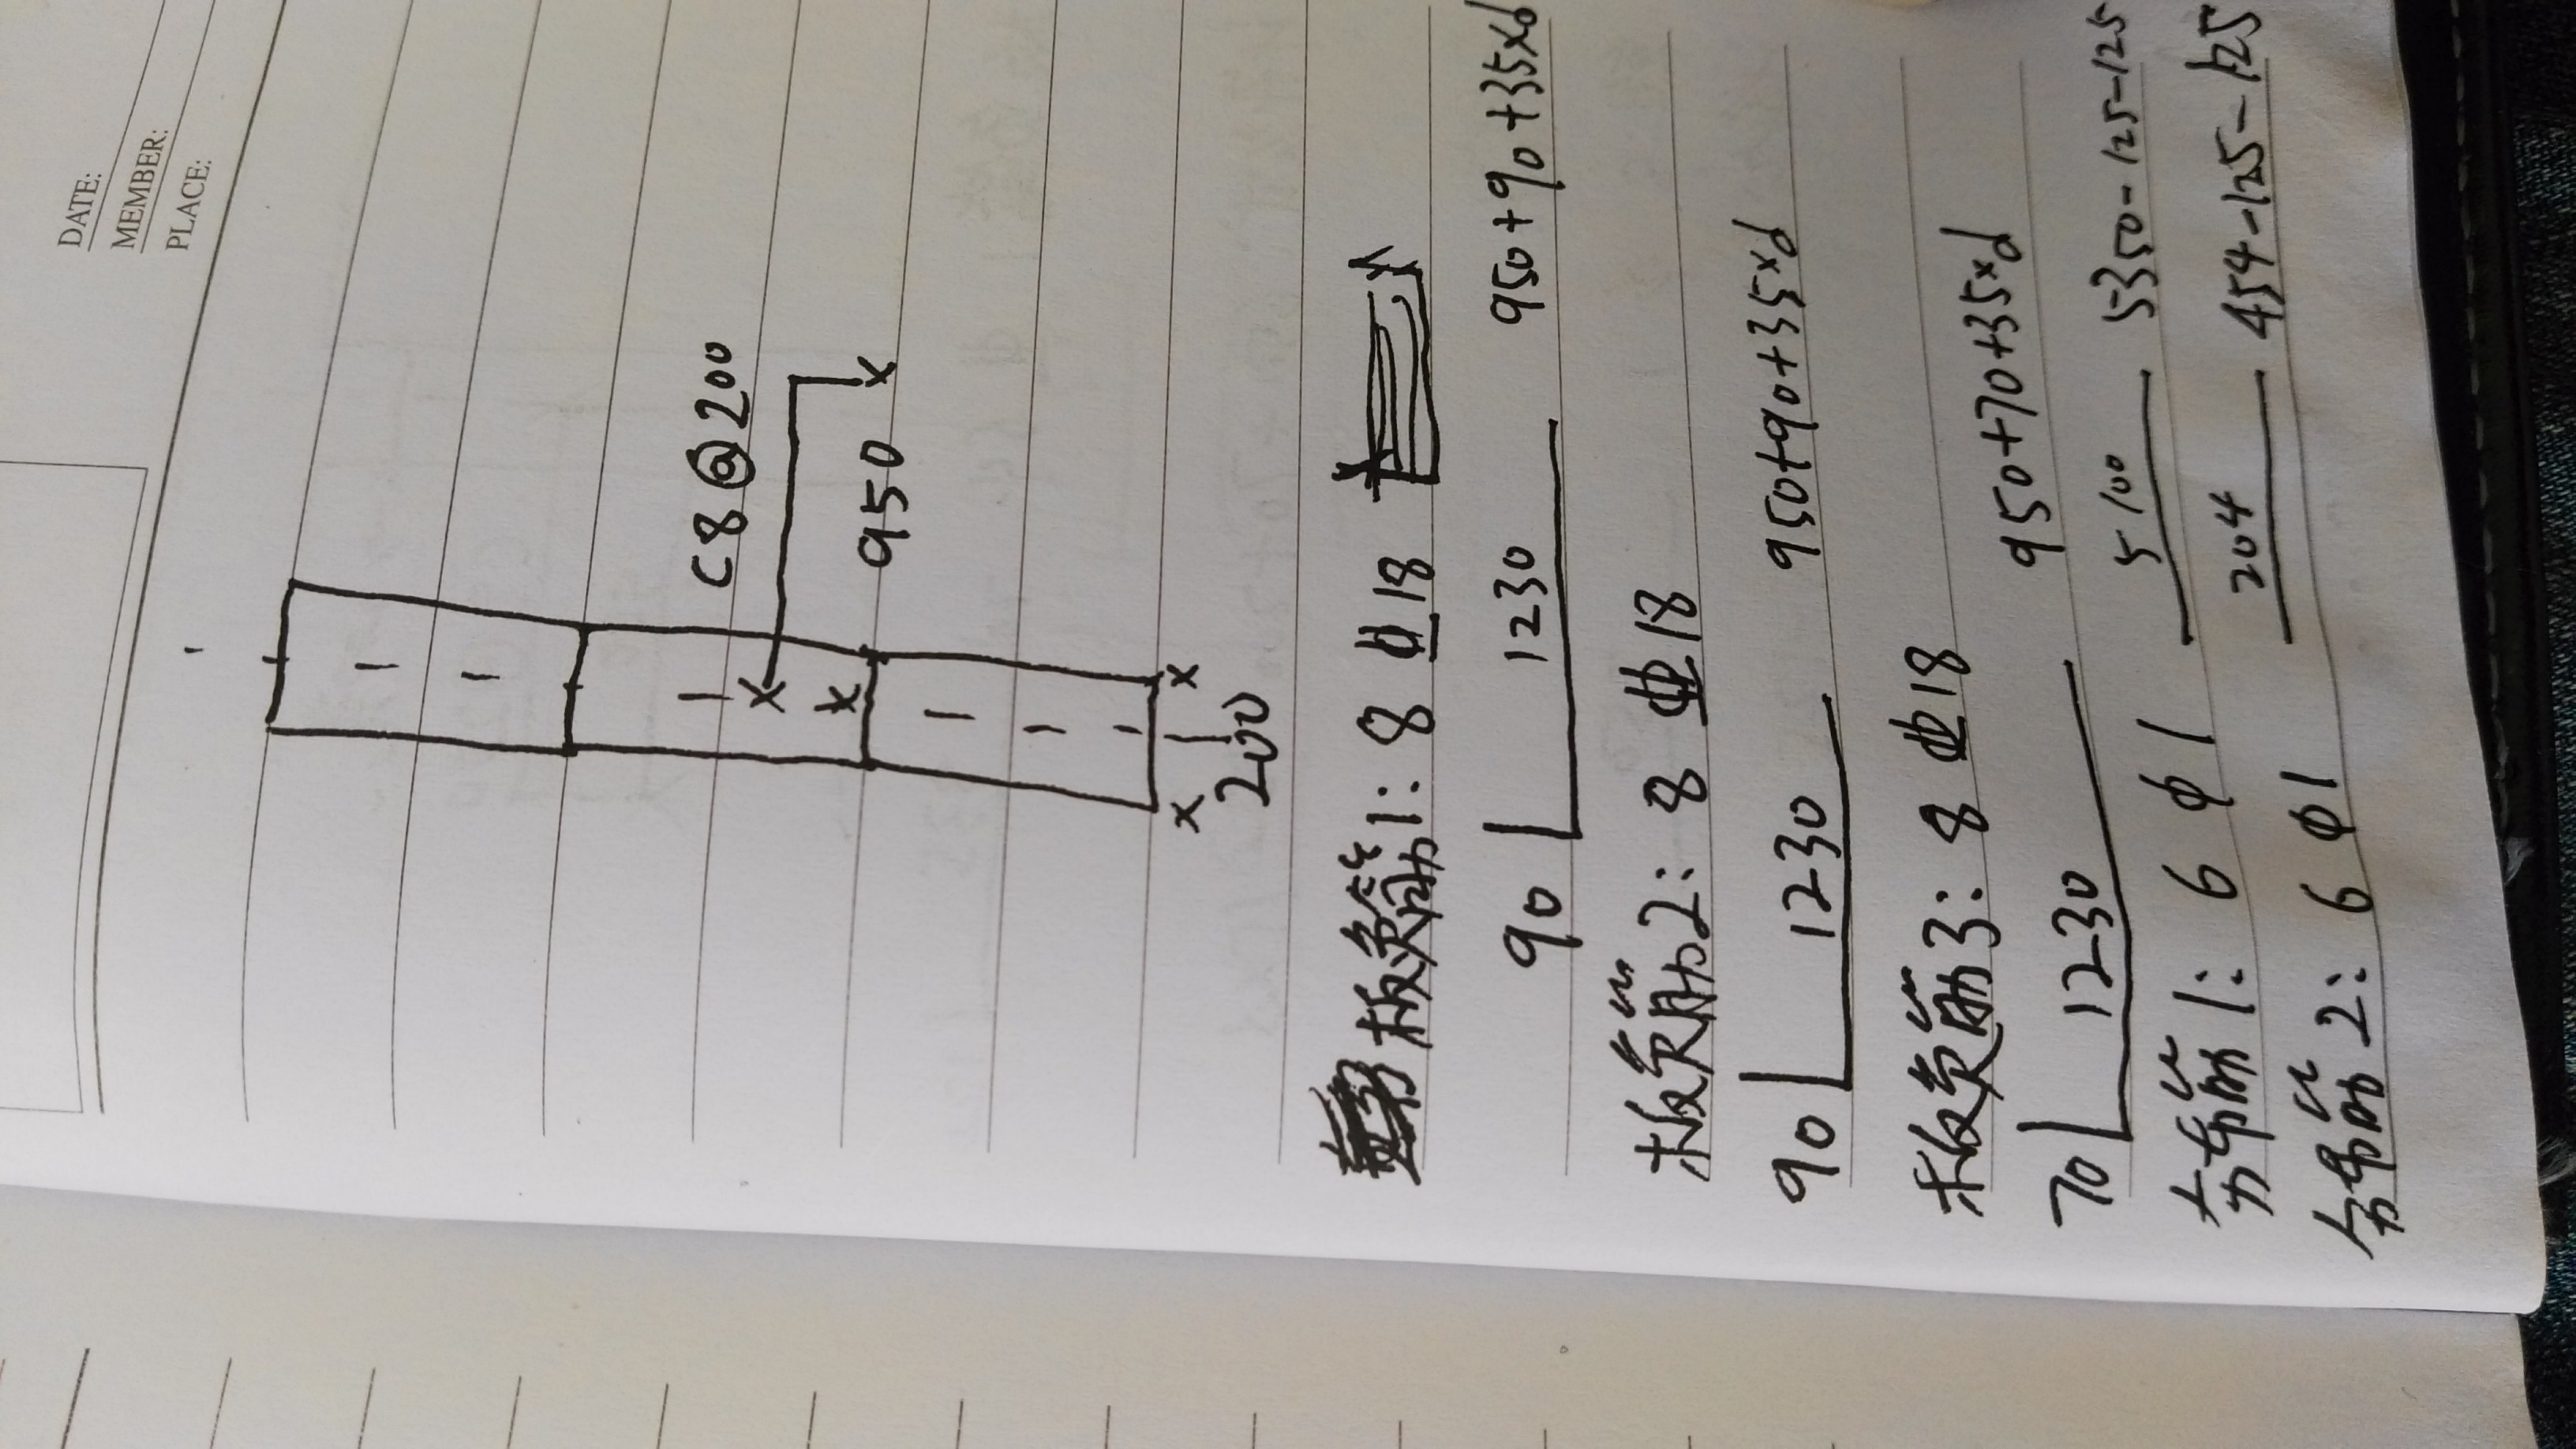 DATE:
MEMBER:
PLACE:
C8@200
950
200
板负筋1: 8 ⏀ 18
90 1230 950+90+35xd
板负筋2: 8 ⏀ 18
90 1230 950+90+35xd
板负筋3: 8 ⏀ 18
70 1230 950+70+35xd
分布筋1: 6 ϕ 1 5100 5350-125-125
分布筋2: 6 ϕ 1 204 454-125-125